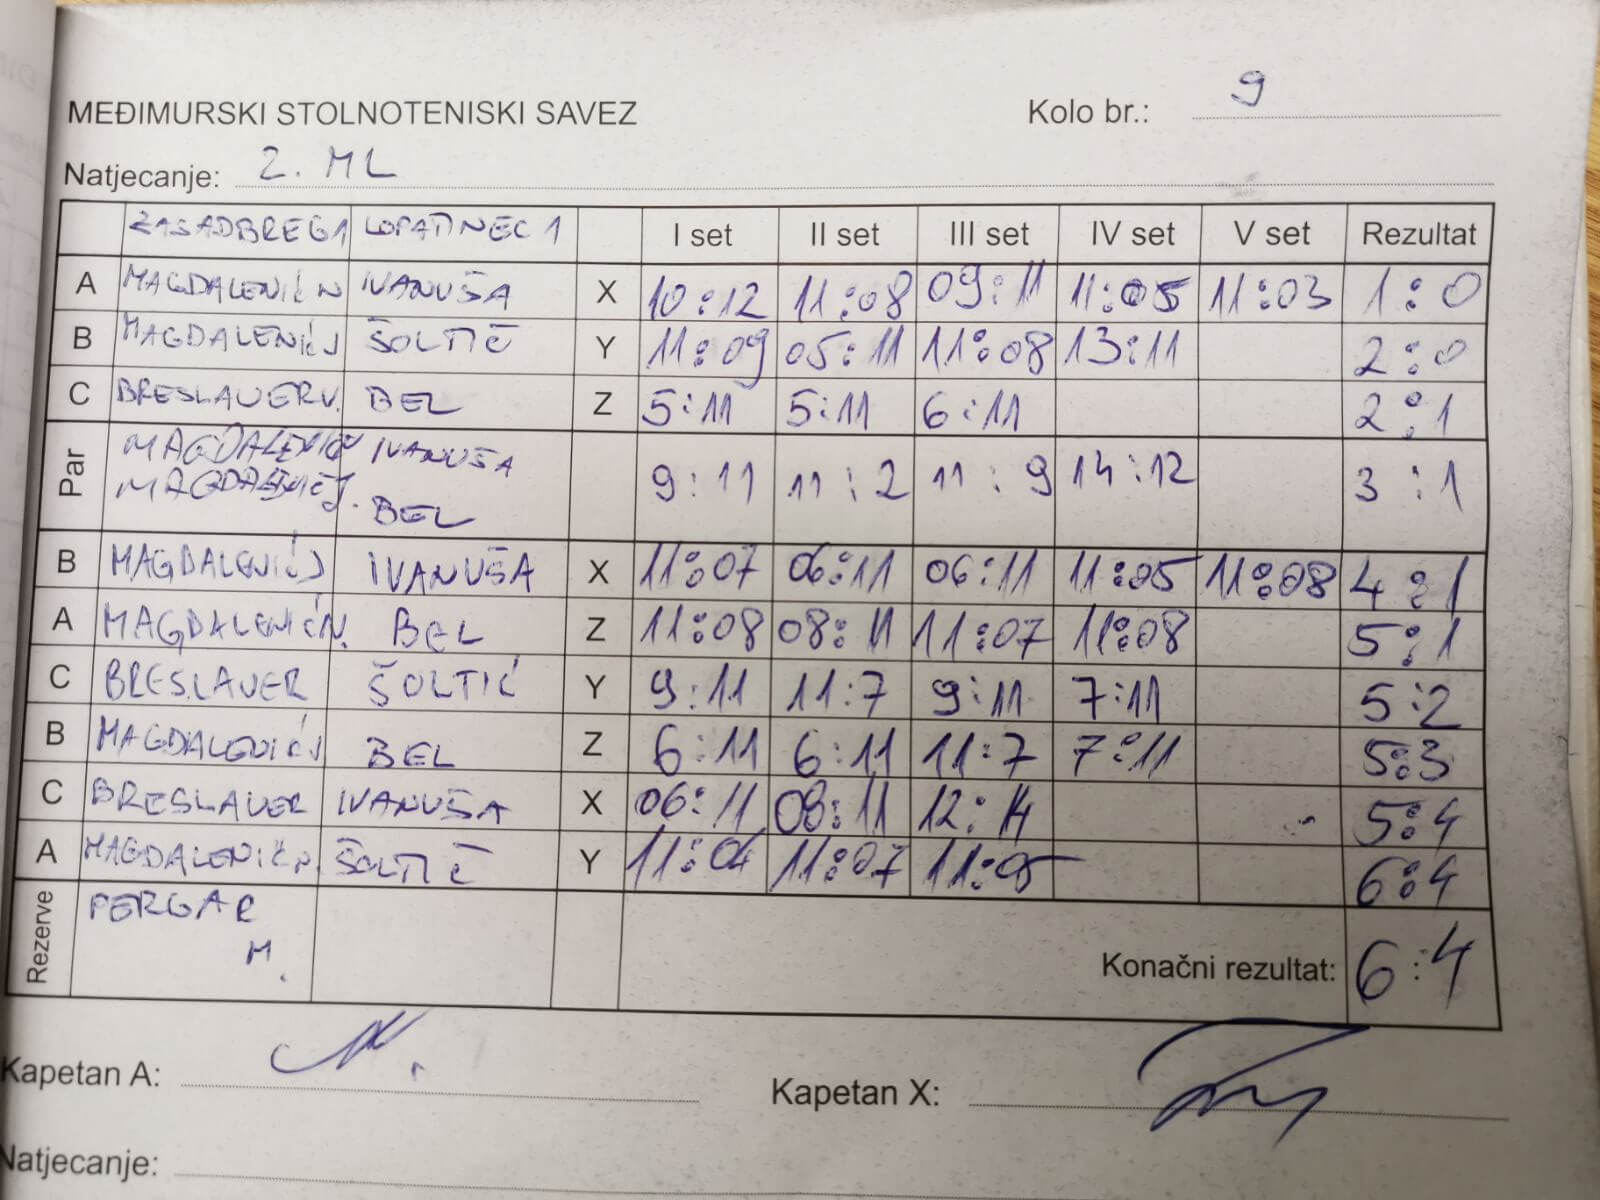 MEĐIMURSKI STOLNOTENISKI SAVEZ Kolo br.: 9
Natjecanje: 2. ML
ZASADBREG 1 LOPATINEC 1 I set II set III set IV set V set Rezultat
A MAGDALENIĆ N IVANUŠA X 10:12 11:08 09:11 11:05 11:03 1:0
B MAGDALENIĆ J ŠOLTIĆ Y 11:09 05:11 11:08 13:11 2:0
C BRESLAUER V. BEL Z 5:11 5:11 6:11 2:1
Par MAGDALENIĆ N IVANUŠA 9:11 11:2 11:9 14:12 3:1
MAGDALENIĆ J. BEL
B MAGDALENIĆ J IVANUŠA X 11:07 06:11 06:11 11:05 11:08 4:1
A MAGDALENIĆ N. BEL Z 11:08 08:11 11:07 11:08 5:1
C BRESLAUER ŠOLTIĆ Y 9:11 11:7 9:11 7:11 5:2
B MAGDALENIĆ J BEL Z 6:11 6:11 11:7 7:11 5:3
C BRESLAUER IVANUŠA X 06:11 08:11 12:14 5:4
A MAGDALENIĆ N. ŠOLTIĆ Y 11:04 11:07 11:05 6:4
Rezerve PERGAR
M.
Konačni rezultat: 6:4
Kapetan A: Kapetan X:
Natjecanje: